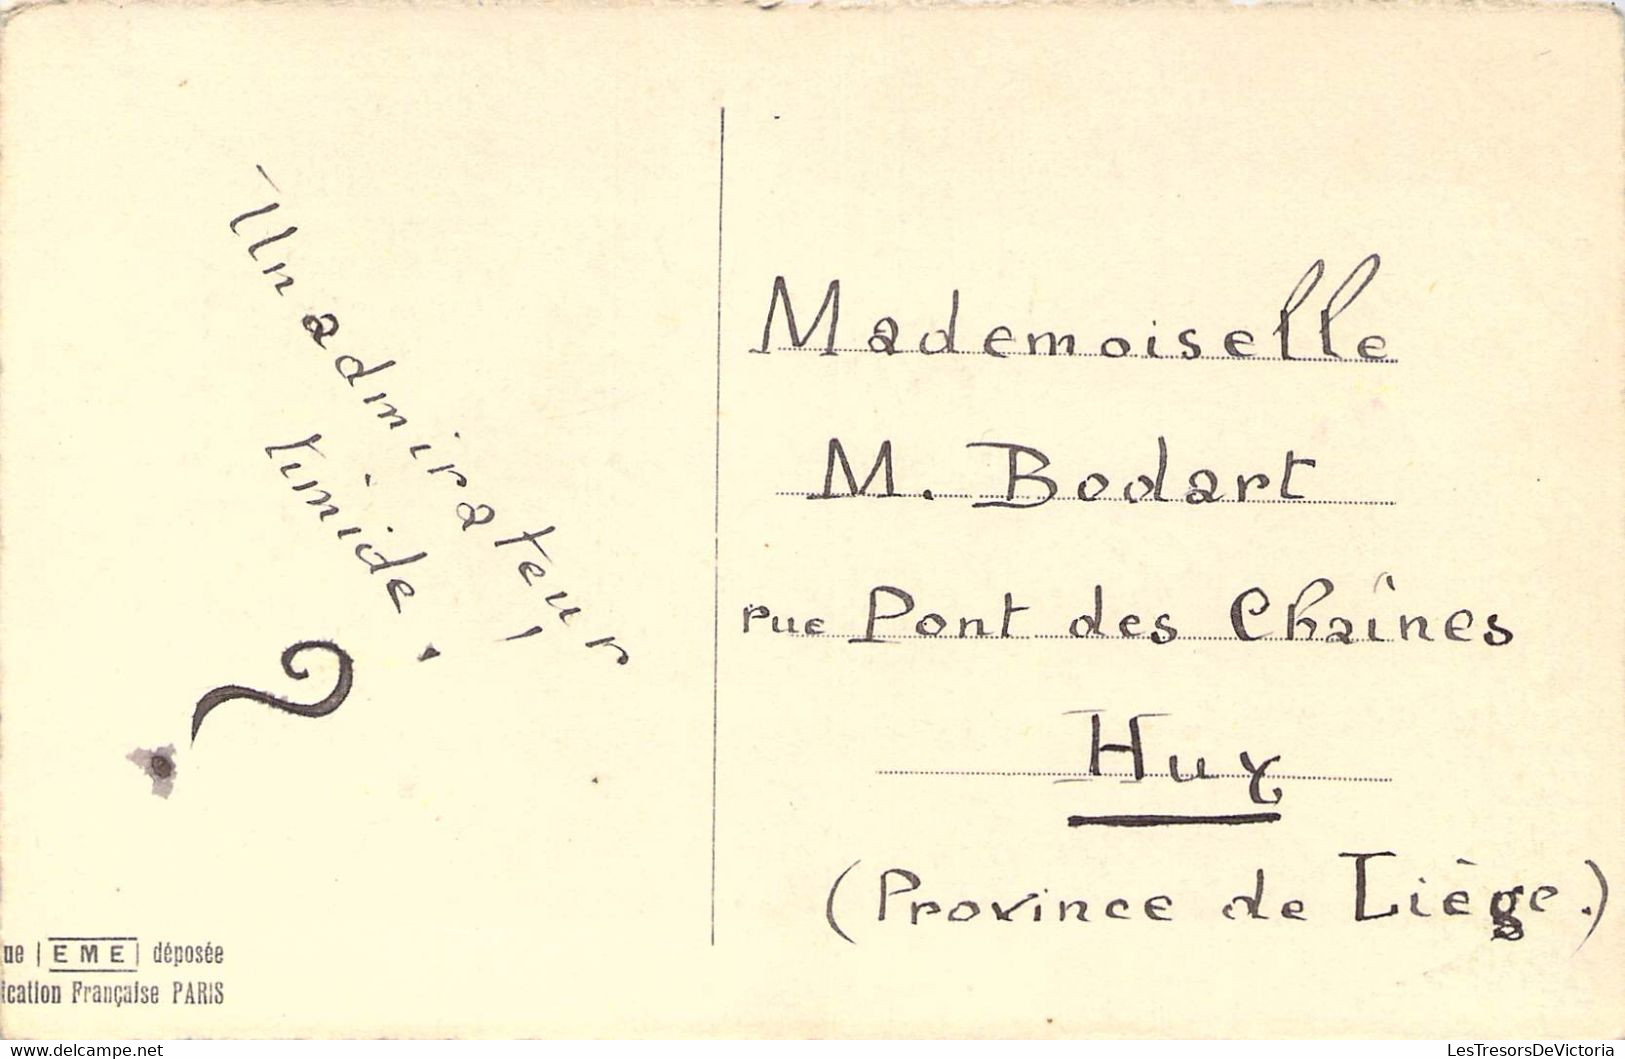 Un admirateur
timide.
?
Mademoiselle
M. Bodart
rue Pont des Chaînes
Huy
(Province de Liège.)
ue EME déposée
ication Française PARIS
www.delcampe.net
LesTresorsDeVictoria